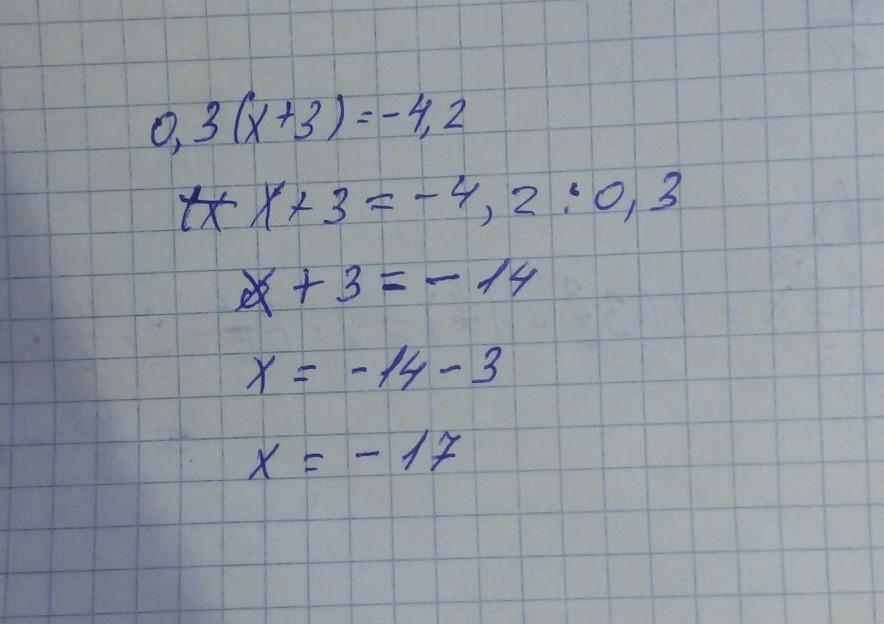 0,3(x+3)=-4,2
x+3=-4,2:0,3
x+3=-14
x=-14-3
x=-17